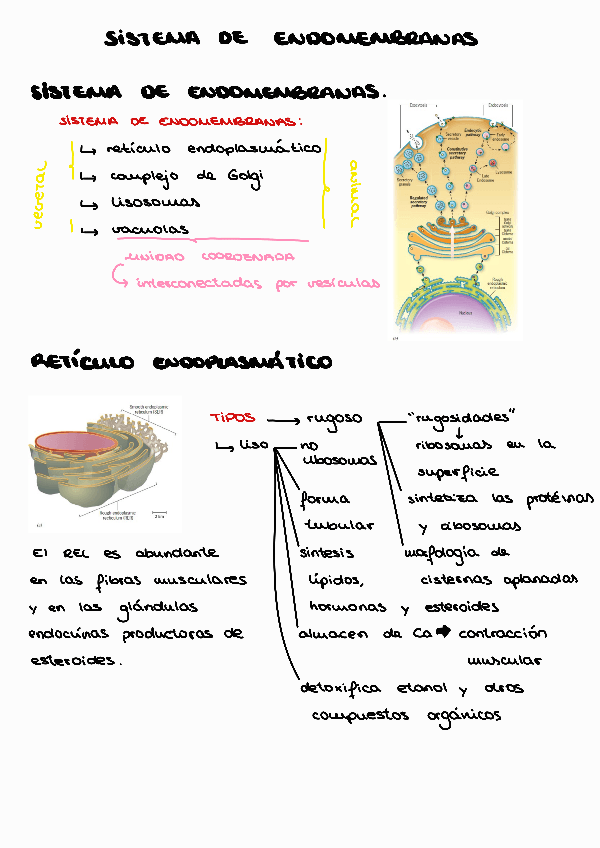 SISTEMA DE ENDOMEMBRANAS
SISTEMA DE ENDOMEMBRANAS.
SISTEMA DE ENDOMEMBRANAS:
↳ retículo endoplasmático
↳ complejo de Golgi
↳ lisosomas
↳ vacuolas
vegetal
animal
UNIDAD COORDENADA
interconectadas por vesículas
Exocytosis
Endocytosis
Secretory vesicle
Endocytic pathway
Early endosome
Constitutive secretory pathway
Secretory granule
Late Endosome
Lysosome
Regulated secretory pathway
Golgi complex
Rough endoplasmic reticulum
Nucleus
RETÍCULO ENDOPLASMÁTICO
Smooth endoplasmic
reticulum (SER)
Rough endoplasmic
reticulum (RER)
TIPOS → rugoso
"rugosidades"
↓
ribosomas en la
superficie
sintetiza las proteínas
y ribosomas
morfología de
cisternas aplanadas
↳ liso
no
ribosomas
forma
tubular
síntesis
lípidos,
hormonas y esteroides
almacen de Ca → contracción
muscular
detoxifica etanol y otros
compuestos orgánicos
El REL es abundante
en las fibras musculares
y en las glándulas
endocrinas productoras de
esteroides.